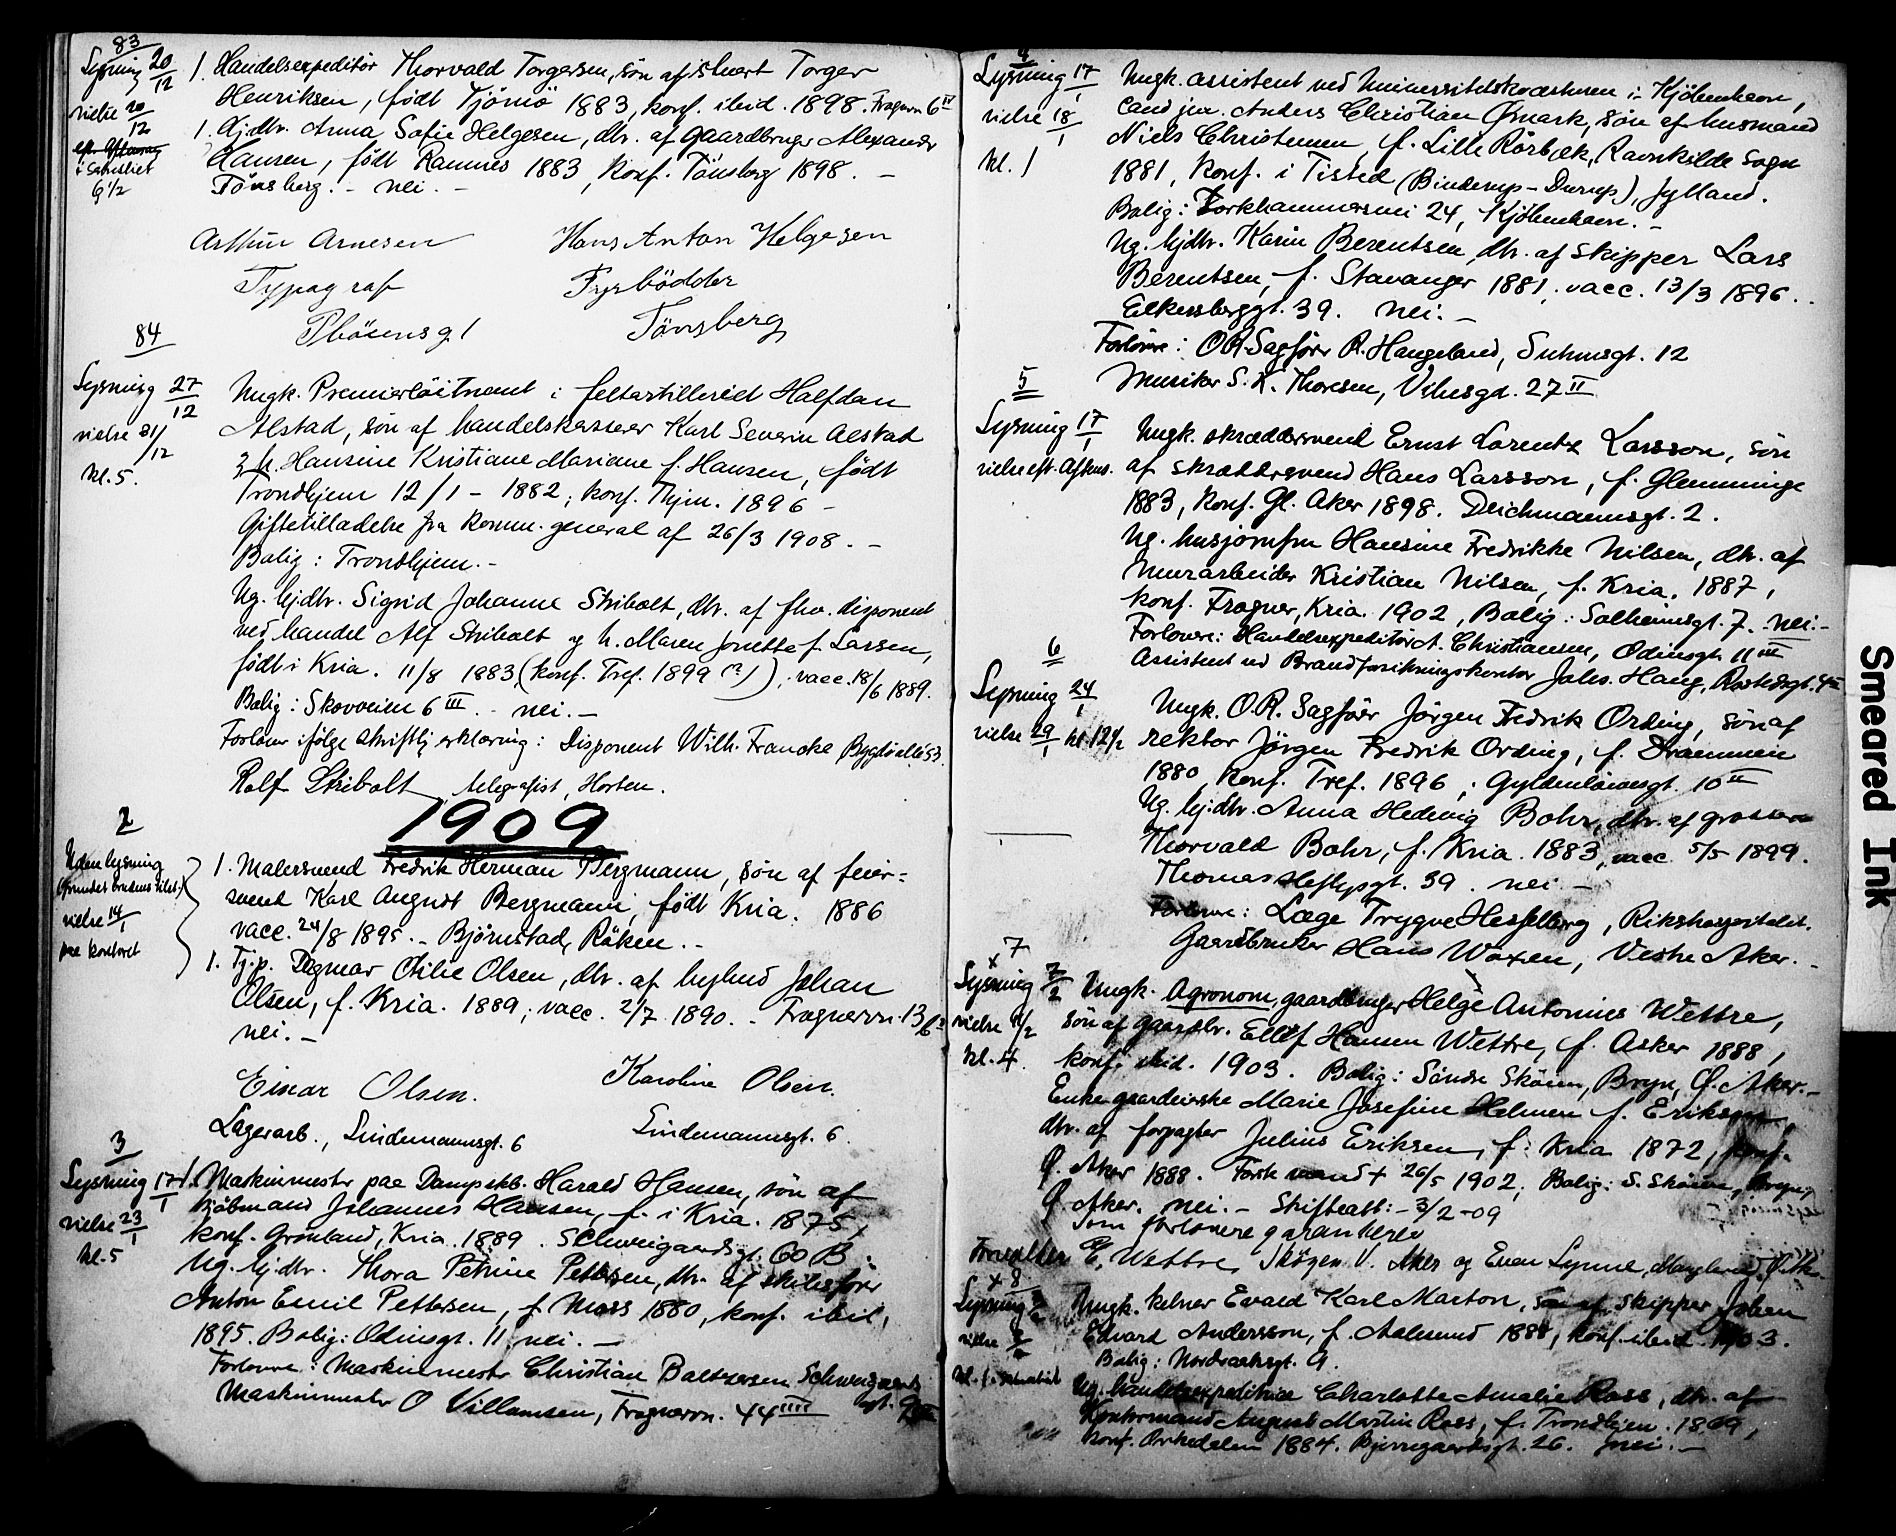 83
Lysning 20/12
vielse 20/12
6 1/2
1. Handelsexpeditör Thorvald Torgersen, sön af Torger
Henriksen, födt Tjömö 1883, konf. ibid. 1898. Fragnerv. 6 IV
1. Hj.dtr. Anna Sofie Helgesen, dtr. af gaardbruger Alexander
Hansen, födt Ramnes 1883, konf. Tönsberg 1898. –
Tönsberg. – nei. –
Arthur Arnesen
Typograf
Hans Anton Helgesen
Fyrbödder
Tönsberg
84
Lysning 27/12
vielse 31/12
kl. 5.
Ungk. Premierlöitnant i feltartilleriet Halfdan
Alstad, sön af handelskasserer Karl Severin Alstad
h. Hansine Kristiane Mariane f. Hansen, födt
Trondhjem 12/1 – 1882; konf. Thjm. 1896 –
Giftetilladelse fra komm. general af 26/3 1908. –
Bolig: Trondhjem. –
Ug. hj.dtr. Sigrid Johanne Stribolt, dtr. af fhv. disponent
ved handel Alf Stribolt og h. Maren Jonette f. Larsen,
födt i Kria. 11/8 1883, (konf. Tref. 1899 (?)); vacc. 18/6 1889.
Bolig: Skovveien 6 III. – nei. –
Forlover ifölge skriftlig erklæring: Disponent Wilh. Francke Bygdöallé 53.
Rolf Stribolt, telegrafist, Horten.
1909
2
Uden lysning
(Grundet brudens tilst.)
vielse 14/1
paa kontoret
1. Malersvend Fredrik Herman Bergmann, sön af feier=
svend Karl August Bergmann, födt Kria. 1886
vacc. 24/8 1895. – Björnstad, Röken. –
1. Tj.p. Dagmar Otilie Olsen, dtr. af bybud Johan
Olsen, f. Kria. 1889; vacc. 2/7 1890. – Fragnerv. 13
nei. –
Einar Olsen.
Lagerarb., Lindemannsgt. 6
Karoline Olsen.
Lindemannsgt. 6.
3
Lysning 17/1
vielse 23/1
kl. 5
1. Maskinmester paa Dampskb. Harald Hansen, sön af
kjöbmand Johannes Hansen, f. i Kria. 1875,
konf. Grönland, Kria. 1889. Schweigaardsgt. 60 B.
Ug. hj.dtr. Thora Petrine Pettersen, dtr. af skibsförer
Anton Emil Pettersen, f. Moss 1880, konf. ibid.
1895. Bolig: Odinsgt. 11, nei. –
Forlovere: Maskinmester Christian Baltzersen Schweigaards
Maskinmester O Villumsen, Fragnerv. 44 IIII
4
Lysning 17/1
vielse 18/1
kl. 1
Ungk. assistent ved Universitetskvæsturen i Kjöbenhavn,
cand jur. Anders Christian Ömark, sön af husmand
Niels Christensen, f. Lille Rörbæk, Ravnkilde Sogn
1881, konf. i Tisted (Binderup–Durup), Jylland.
Bolig: Forkhammersvei 24, Kjöbenhavn. –
Ug. hj.dtr. Karin Berentsen, dtr. af skipper Lars
Berentsen, f. Stavanger 1881; vacc. 13/3 1896.
Eilkersberggt. 39. nei. –
Forlovere: O.R. Sagförer R. Haugeland, Suhmsgt. 12
Musiker S. K. Thoresen, Vibesgd. 27 II
5
Lysning 17/1
vielse eft. Afkns.
Ungk. skræddersvend Ernst Lorentz Larsson, sön
af skræddersvend Hans Larsson, f. Glemminge
1883, konf. Gl. Aker 1898. Deichmannsgt. 2.
Ug. husjomfru Hansine Fredrikke Nilsen, dtr. af
murarbeider Kristian Nilsen, f. Kria. 1887,
konf. Fragner, Kria. 1902, Bolig: Solheimsgt. 7. nei. –
Forlovere: Handelsexpeditör A. Christiansen, Odinsgt. 11 III
Assistent ved Brandforsikringskontor Johs. Haug,
6
Lysning 24/1
vielse 29/1 kl. 12 1/2
Ungk. O.R. Sagförer Jörgen Fredrik Ording, sön af
rektor Jörgen Fredrik Ording, f. Drammen
1880, konf. Tref. 1896; Gyldenlövesgt. 10 II
Ug. hj.dtr. Anna Hedevig Bohr, dtr. af grosserer
Thorvald Bohr, f. Kria. 1883, vacc. 5/5 1899.
Thomas Heftyesgt. 39. nei –
Forlovere: Læge Trygve Hesselberg, Rikshospitalet.
Gaardbruker Hans Waxen, Vestre Aker. –
x 7
Lysning 7/2
vielse
kl. 4
Ungk. Agronom, gaardbruger Helge Antonius Wettre,
sön af gaardbr. Ellef Hansen Wettre, f. Asker 1888,
konf. ibid. 1903. Bolig: Söndre Sköien, Bryn, Ö. Aker. –
Enke gaardeierske Marie Josefine Helmen f. Eriksen,
dtr. af forpagter Julius Eriksen, f. Kria 1872, konf.
Ö. Aker 1888. Forr. mand † 26/5 1902; Bolig: S. Sköien, Bryn,
Ö. Aker. nei. – Skifteatt: – 3/2 – 09
Som forlovere garanterer
E. Wettre, Skögen V. Aker og Even Lynne,
x 8
Lysning
vielse
Ungk. kelner Evald Karl Marton, sön af skipper Johan
Edvard Andersson, f. Aalesund 1888, konf. ibid. 1903.
Bolig: Nordraaksgt. 9.
Ug. handelsexpeditrice Charlotte Amalie Ross, dtr. af
Kontormand August Martin Ross, f. Trondhjem 1869,
konf. Orkedalen 1884. Bjerregaardsgt. 26. nei. –
Smeared Ink